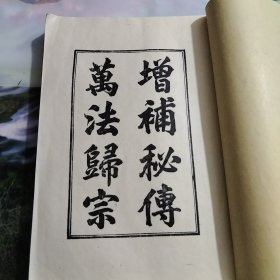 增補秘傳
萬法歸宗